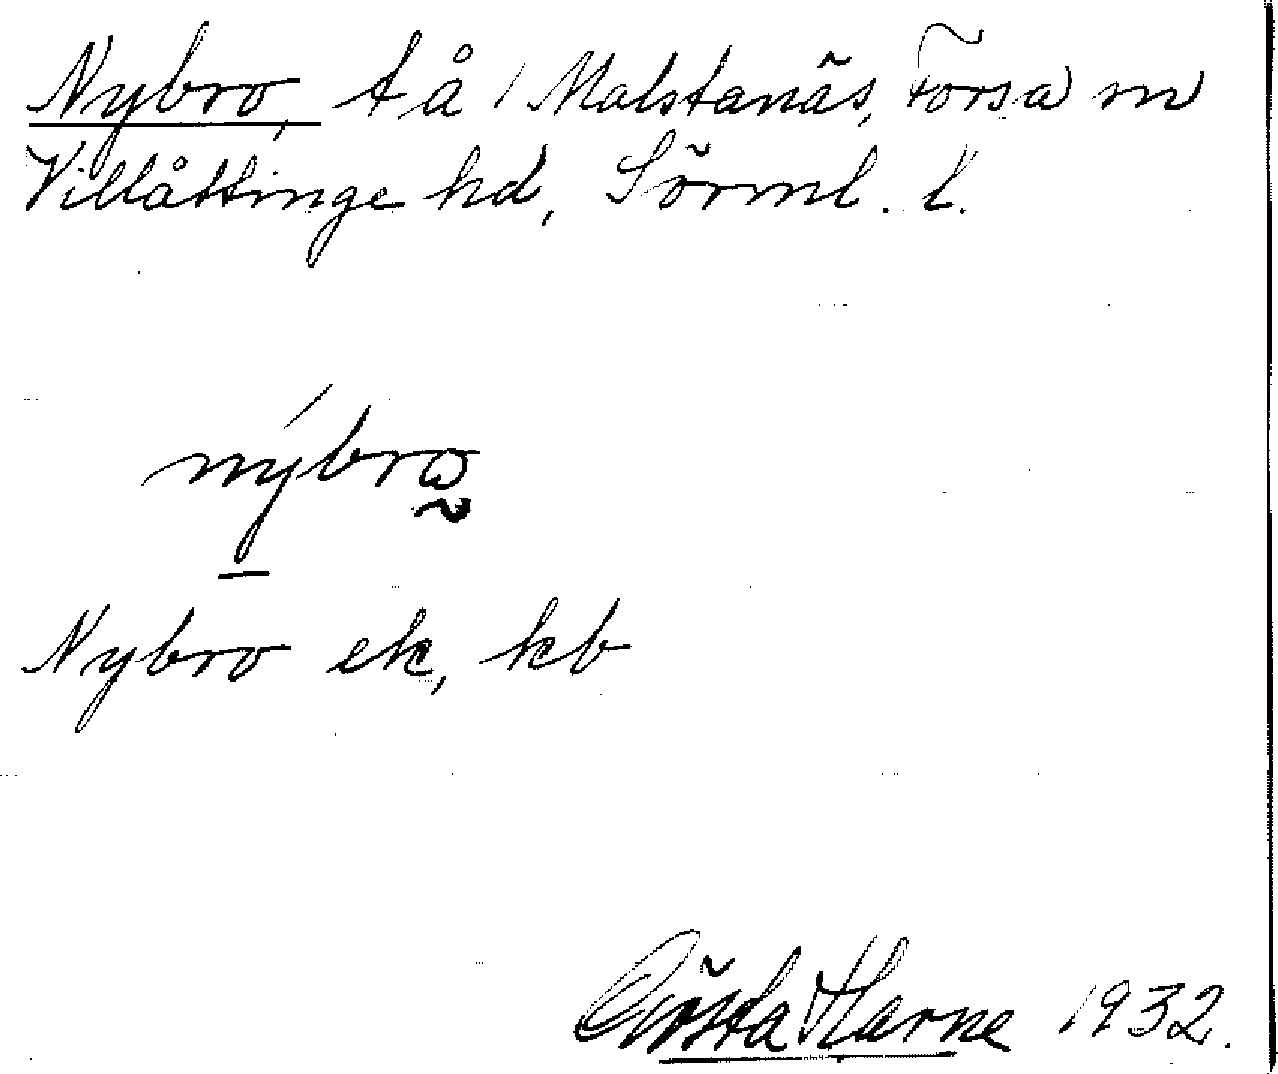 Nybro, t å 1 Malstanäs, Forsa sn
Villåttinge hd, Sörml. l.
nýbrω
Nybro ek, kb
Gösta Harne 1932.